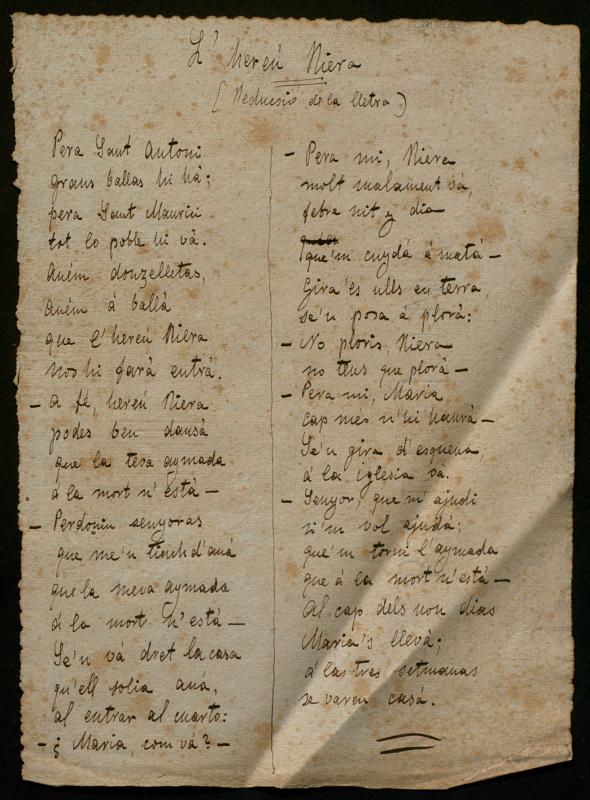 L' hereú Riera
(Reducsió de la lletra)
Pera Sant Antoni
grans ballas hi há;
pera Sant Maurici
tot lo poble hi vá.
Aném donzelletas,
aném á ballá
que l'hereú Riera
nos hi fará entrá.
– A fé, hereú Riera
podes ben dansá
que la teva aymada
á la mort n'está –
– Perdonin senyoras
que me'n tinch d'aná
que la meva aymada
á la mort n'está –
Se'n vá dret la casa
qu'ell solia aná,
al entrar al cuarto:
– ¿ Maria, com vá? –
– Pera mi, Riera
molt malament vá,
febra nit y dia
que'm cuydá á matá –
Gira'es ulls en terra,
se'n posa á plorá:
– No ploris, Riera
no tens que plorá –
– Pera mi, Maria
cap més n'hi haurá –
Se'n gira d'esquena,
á la iglesia vá.
– Senyor, que m'ajudi
si'm vol ajudá;
que'm torni l'aymada
que á la mort n'está –
Al cap dels nou dias
Maria's llevá;
á las tres setmanas
se varen casá.